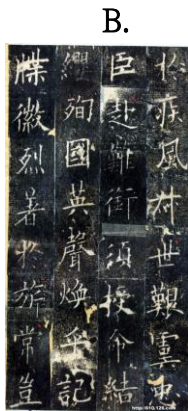 B.
於疾風叔世艱虞忠
臣赴難銜須授命結
纓殉國英聲煥乎記
牒徽烈著於旂常豈